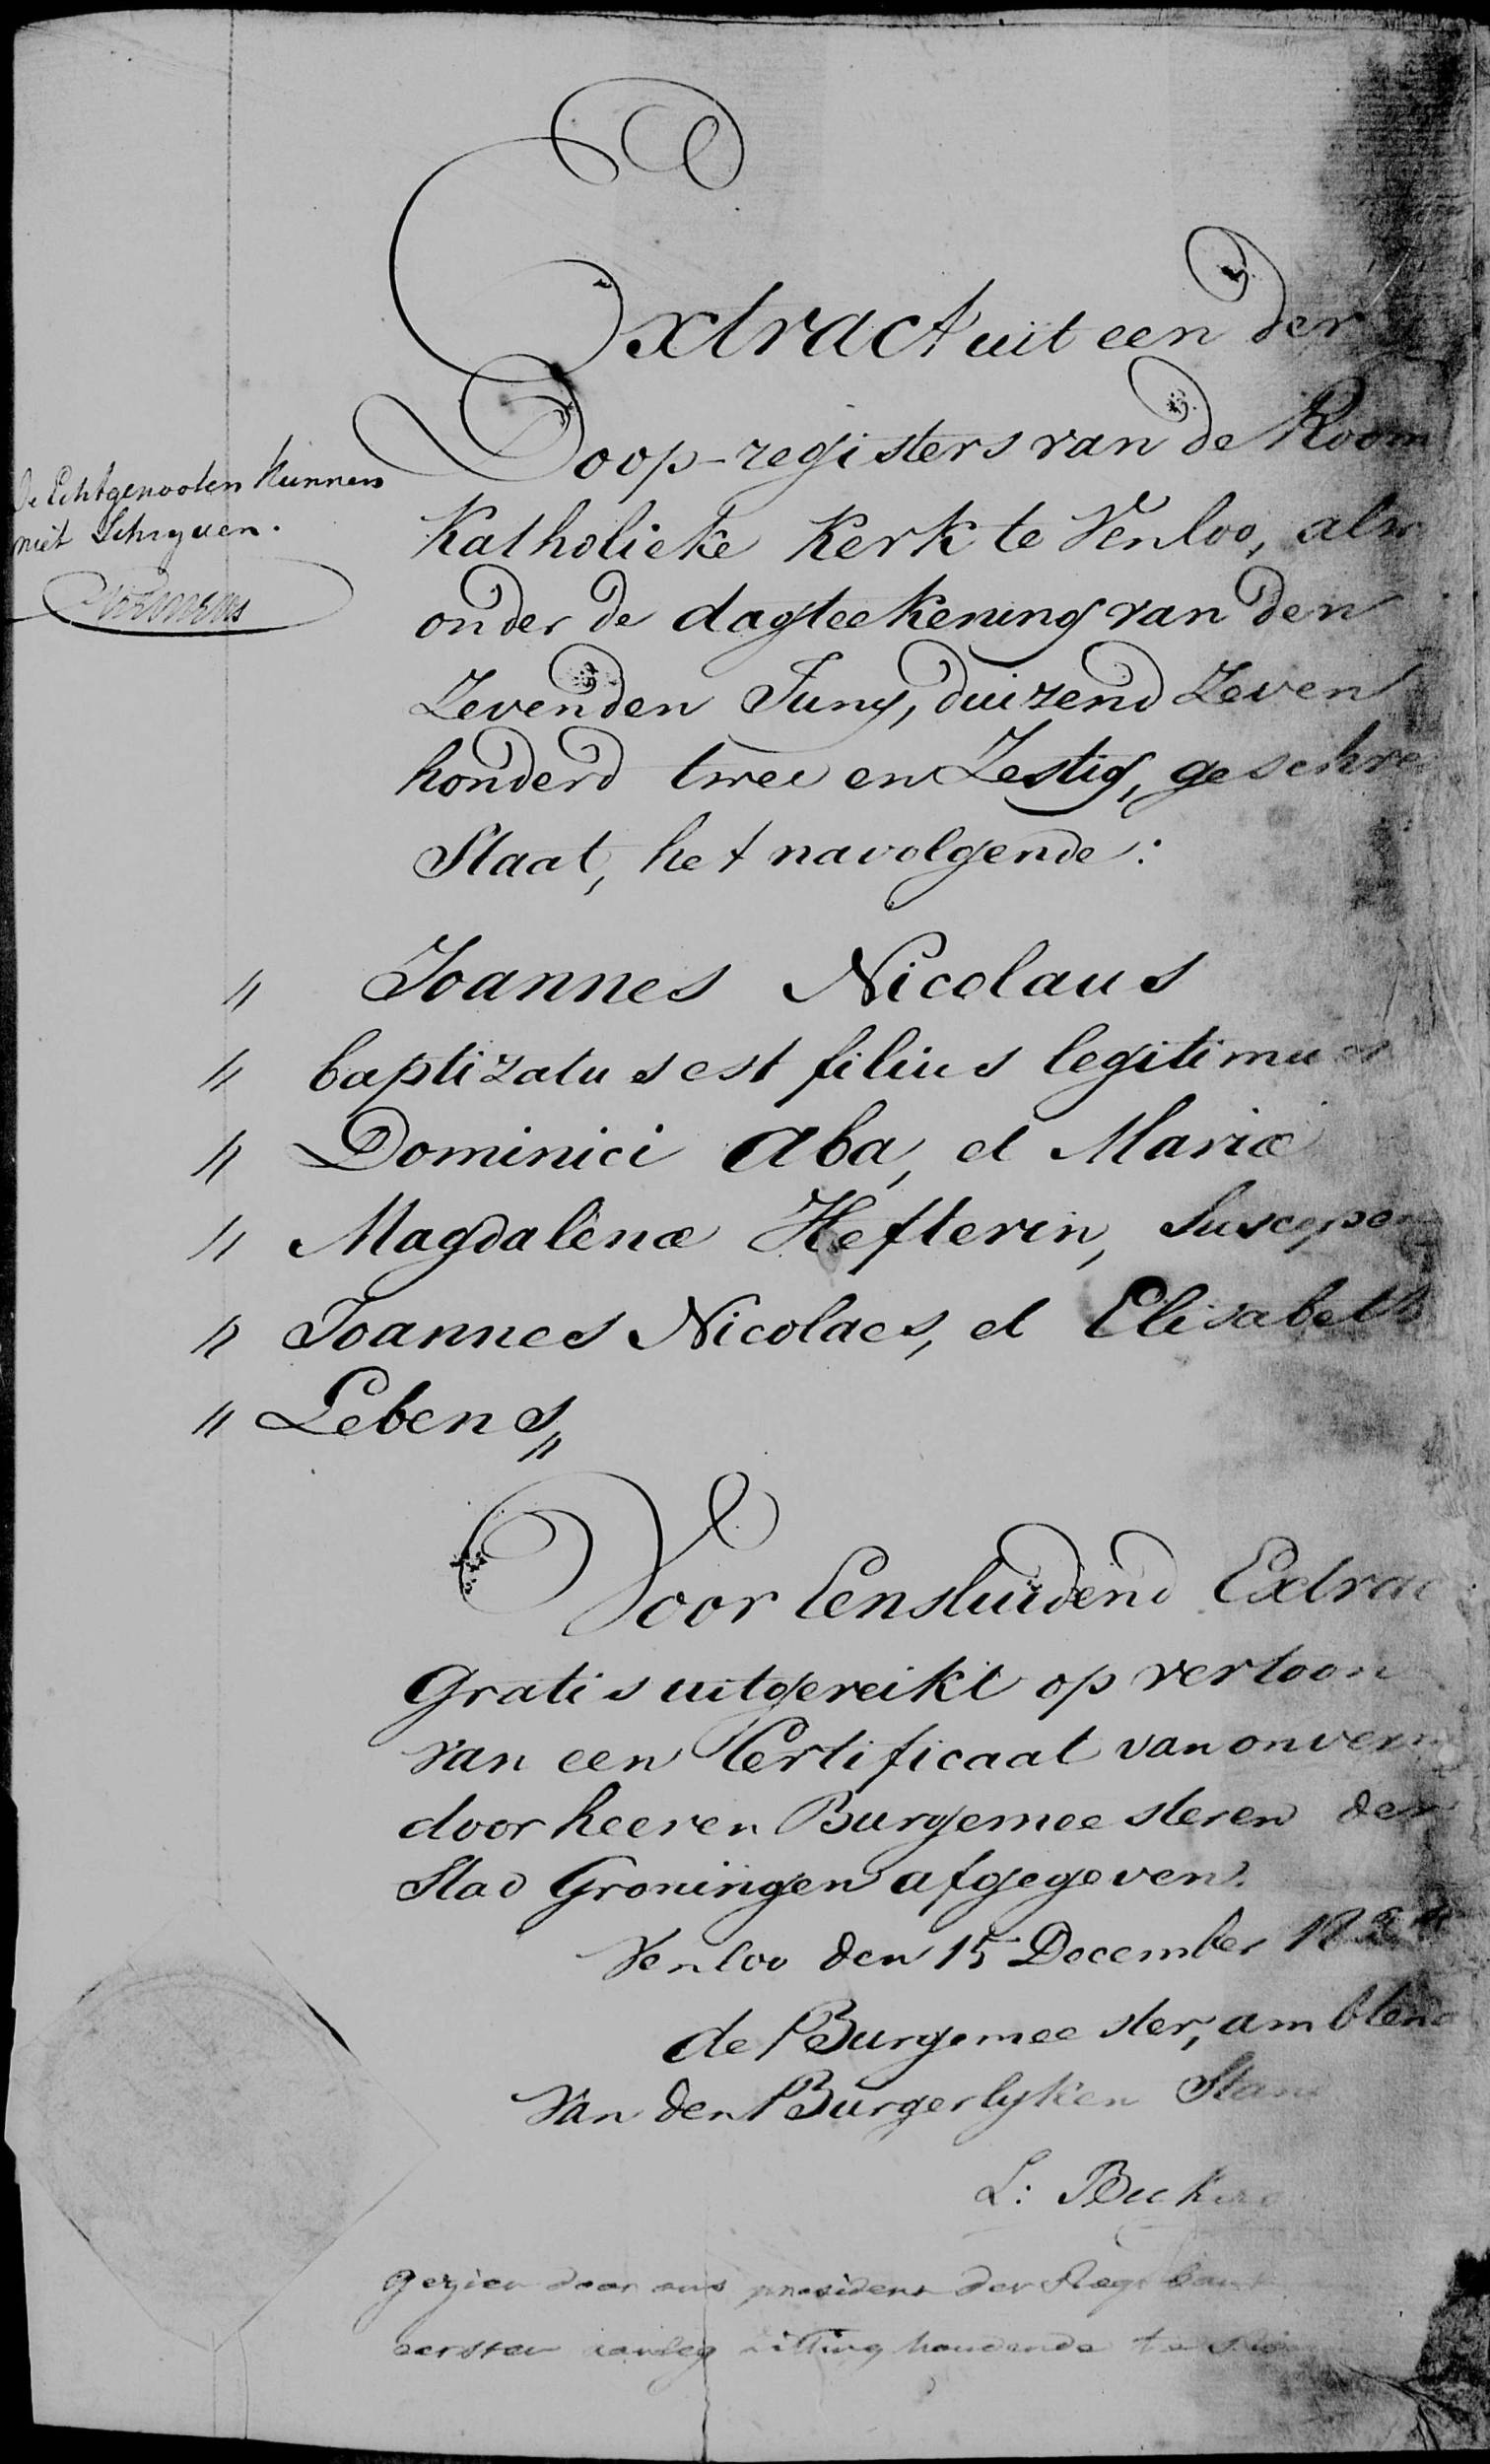 Extract uit een der
Doop-registers van de Room
Katholieke Kerk te Venloo, alw
onder de dagteekening van den
Zevenden Juny, duizend Zeven
honderd twee en Zestig, geschre
Staat, het navolgende:
De Echtgenooten Kunnen
niet Schryven.
" Joannes Nicolaus
" baptizatus est filius legitimus
" Dominici Aba, et Mariæ
" Magdalenæ Hefterin, Suscepe
" Joannes Nicolaes, et Elisabeth
" Lebens"
Voor Eensluidend Extrac
Gratis uitgereikt op vertoon
van een Certificaat van onverm
door heeren Burgemeesteren der
Stad Groningen afgegeven.
Venloo den 15 December
de Burgemeester, ambtena
Van den Burgerlyken Stand
L:
Gezien door ons president der Regtbank
eersten aanleg zitting houdende te